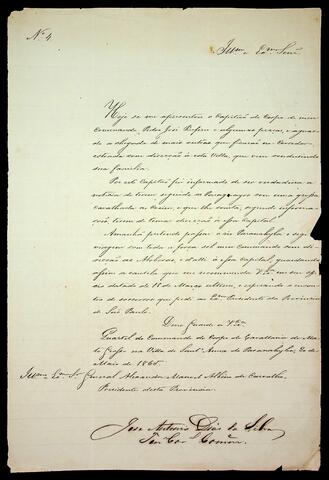 Nº 4.
Illmo e Exmo Senr
Hoje se me apresentou o Capitão do Corpo de meu
Commando Pedro José Rufino e algumas praças, e aguar-
do a chegada de mais outras que ficarão no Corredor,
com direcção á esta Villa, que vem conduzindo
sua familia.
Por este Capitão fui informado de ser verdadeira a
noticia de terem seguido os Paraguayos com uma grossa
Cavalhada ao Coxim, e que lhe consta, segundo informa-
ções, terem de tomar direcção á essa Capital.
Amanhã pretendo passar o rio Paranahyba, e sigo
viagem com toda a força sob meu commando com di-
recção as Abboras, e d'alli á essa Capital, guardando
assim a cautela que me recommenda VExa em seu of-
ficio datado de 18 de Março ultimo, e esperando o encon-
tro de soccorros que pedi ao Exmo Presidente da Provincia
de São Paulo.
Deus Guarde a VExa
Quartel do Commando do Corpo de Cavallaria de Ma-
to Grosso na Villa de Sant' Anna do Paranahyba, de
Maio de 1865.
Illmo Exmo Sr General Alexandre Manoel Albino de Carvalho,
Presidente desta Provincia.
José Antonio Dias da Silva
Ten Cor Comme